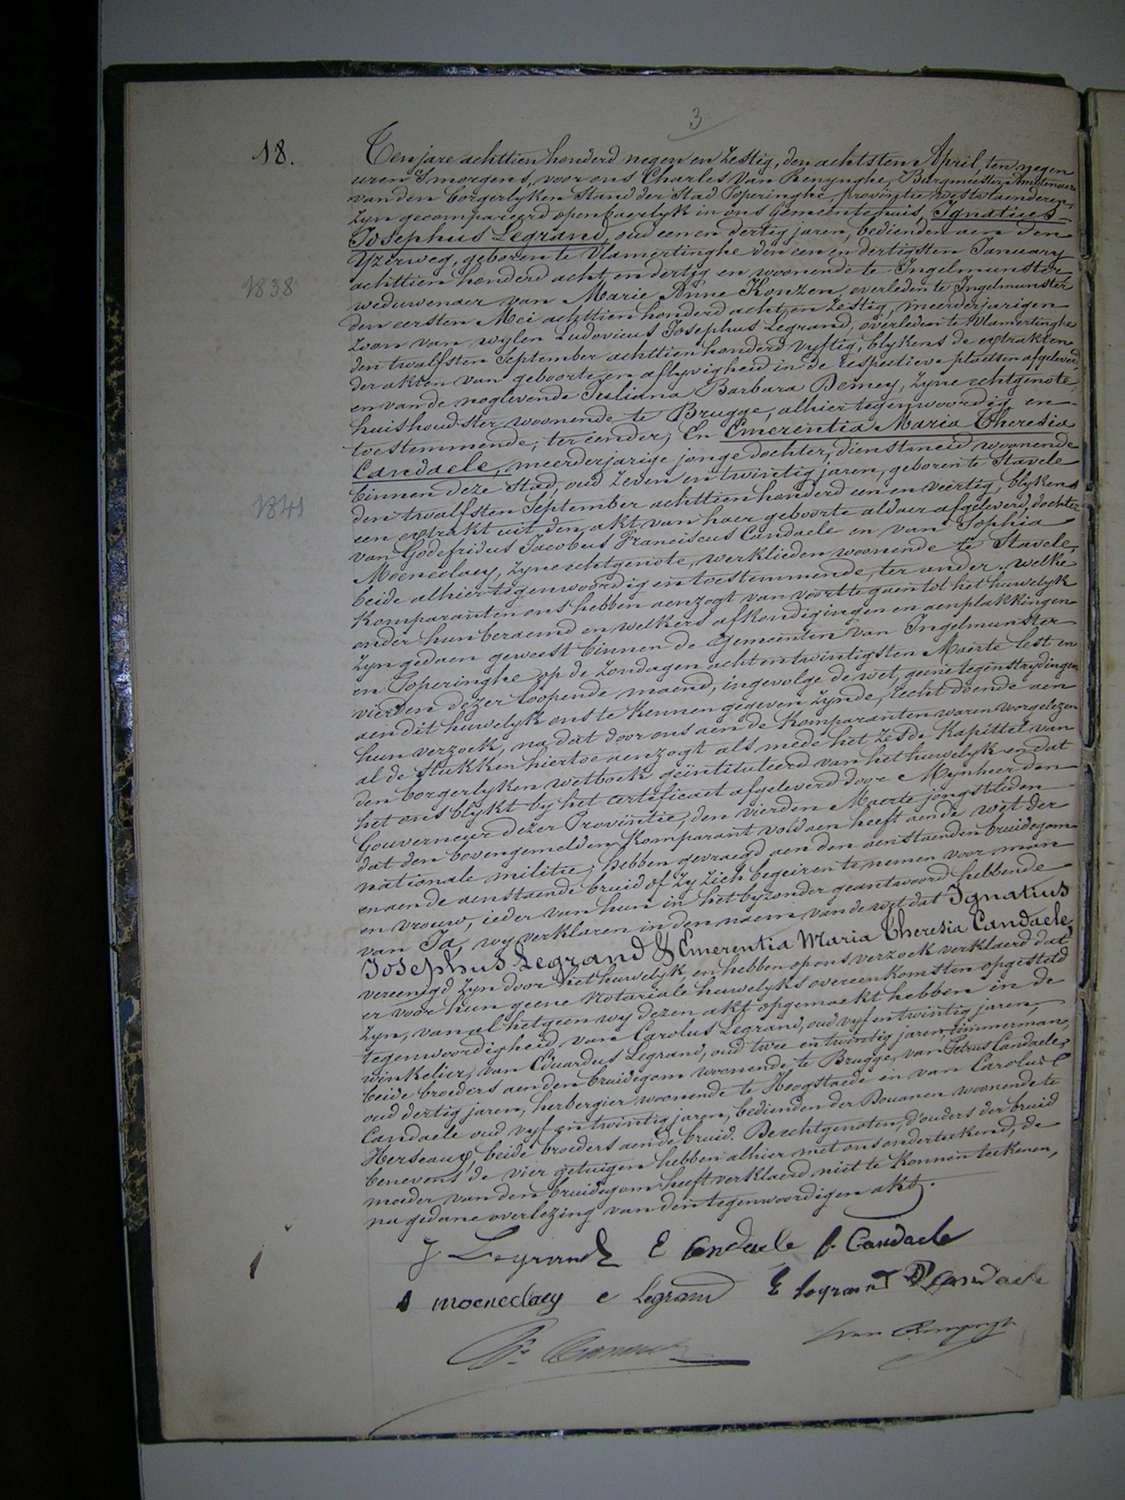 3
18.
Ten jare achttien honderd negen en zestig, den achtsten April, ten negen
uren 's morgens, voor ons Charles Van Renynghe, Burgmeester, Amtenaer
van den borgerlyken stand der stad Poperinghe, provintie westvlaenderen,
zyn gecompareerd openbaerlyk in ons gemeentehuis, Ignatius
Josephus Legrand, oud een en dertig jaren, bedienden aen den
Yzerweg, geboren te Vlamertinghe den een en dertigsten January
achttien honderd acht en dertig en woonende te Ingelmunster,
1838
weduwenaer van Marie Anne Konzen, overleden te Ingelmunster
den eersten Mei achttien honderd acht en zestig, meerderjarigen
zoon van wylen Ludovicus Josephus Legrand, overleden te Vlamertinghe
den twalfsten September achttien honderd vyftig, blykens de extrakten
der akten van geboorte en aflyvigheid in de respectieve plaetsen afgeleverd,
en van de noglevende Juliana Barbara Demey, zyne echtgenote
huishoudster woonende te Brugge, alhier tegenwoordig en
toestemmende; ter eender; En Emerentia Maria Theresia
Candaele, meerderjarige jonge dochter, dienstmeid woonende
binnen deze stad, oud zeven en twintig jaren, geboren te Stavele
1841
den twalfsten September achttien honderd een en veertig, blykens
een extrakt uit den akt van haer geboorte aldaer afgeleverd, dochter
van Godefridus Jacobus Franciscus Candaele en van Sophia
Moeneclaey, zyne echtgenote, werklieden woonende te Stavele,
beide alhier tegenwoordig en toestemmende, ter ander. welke
komparanten ons hebben aenzogt van voort te gaen tot het huwelyk
onder hun beraemd en welkers afkondigingen en aenplakkingen
zyn gedaen geweest binnen de gemeenten van Ingelmunster
en Poperinghe op de zondagen acht en twintigsten Maerte lest en
vierden dezer loopende maend, ingevolge de wet, geene tegenstrydingen
aen dit huwelyk ons te kennen gegeven zynde, recht doende aen
hun verzoek, na dat door ons aen de komparanten waren voorgelezen
al de stukken hiertoe aenzogt als mede het zesde kapittel van
den borgerlyken wetboek geïntituleerd van het huwelyk en dat
het ons blykt by het certificaet afgeleverd door Mynheer den
Gouverneur dezer Provintie, den vierden Maerte jongstleden
dat den bovengemelden komparant voldaen heeft aende wet der
nationale militie, hebben gevraegd aen den aenstaenden bruidegom
en aende aenstaende bruid of zy zich begeiren te nemen voor man
en vrouw, ieder van hun in het byzonder geantwoord hebbende
van Ja, wy verklaren in den naem van de wet dat Ignatius
Josephus Legrand & Emerentia Maria Theresia Candaele
vereenigd zyn door het huwelyk en hebben op ons verzoek verklaerd dat
er voor hun geene notariale huwelyks overeenkomsten opgesteld
zyn, van al hetgeen wy dezen akt opgemaekt hebben in de
tegenwoordigheid van Carolus Legrand, oud vyf en twintig jaren,
winkelier, van Eduardus Legrand, oud twee en twintig jaren, timmerman,
beide broeders aen den bruidegom woonende te Brugge, van Petrus Candaele,
oud dertig jaren, herbergier woonende te Hoogstaede en van Carolus
Candaele oud vyf en twintig jaren, bedienden der Douanen woonende te
Herseaux, beide broeders aen de bruid. De echtgenoten, d'ouders der bruid
benevens de vier getuigen hebben alhier met ons onderteekend, de
moeder van den bruidegom heeft verklaerd niet te konnen teekenen,
na gedane overlezing van den tegenwoordigen akt.
J Legrand E Candaele f. Candaele
S moeneclaey c Legrand E Legrand P Candaele